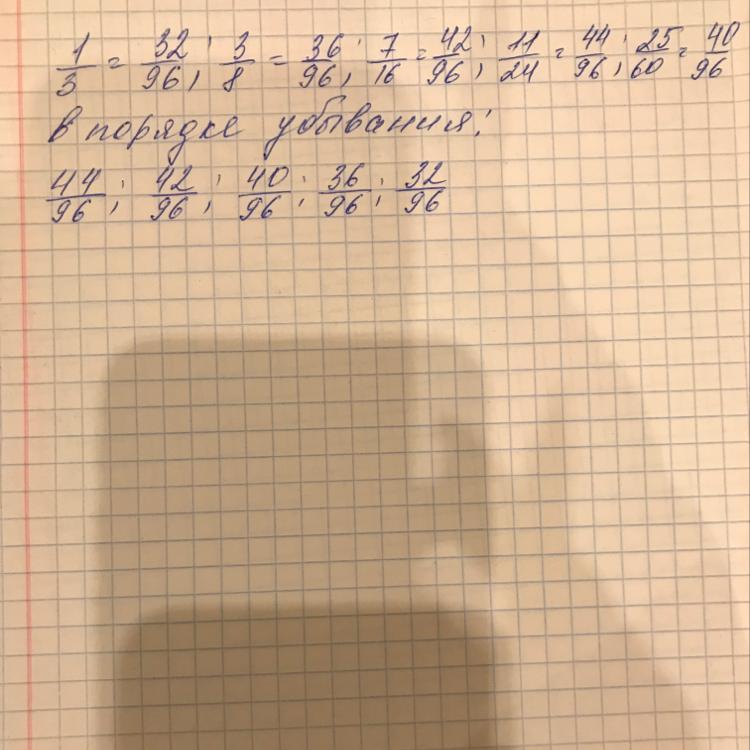 1/3 = 32/96; 3/8 = 36/96; 7/16 = 42/96; 11/24 = 44/96; 25/60 = 40/96
в порядке убывания:
44/96; 42/96; 40/96; 36/96; 32/96